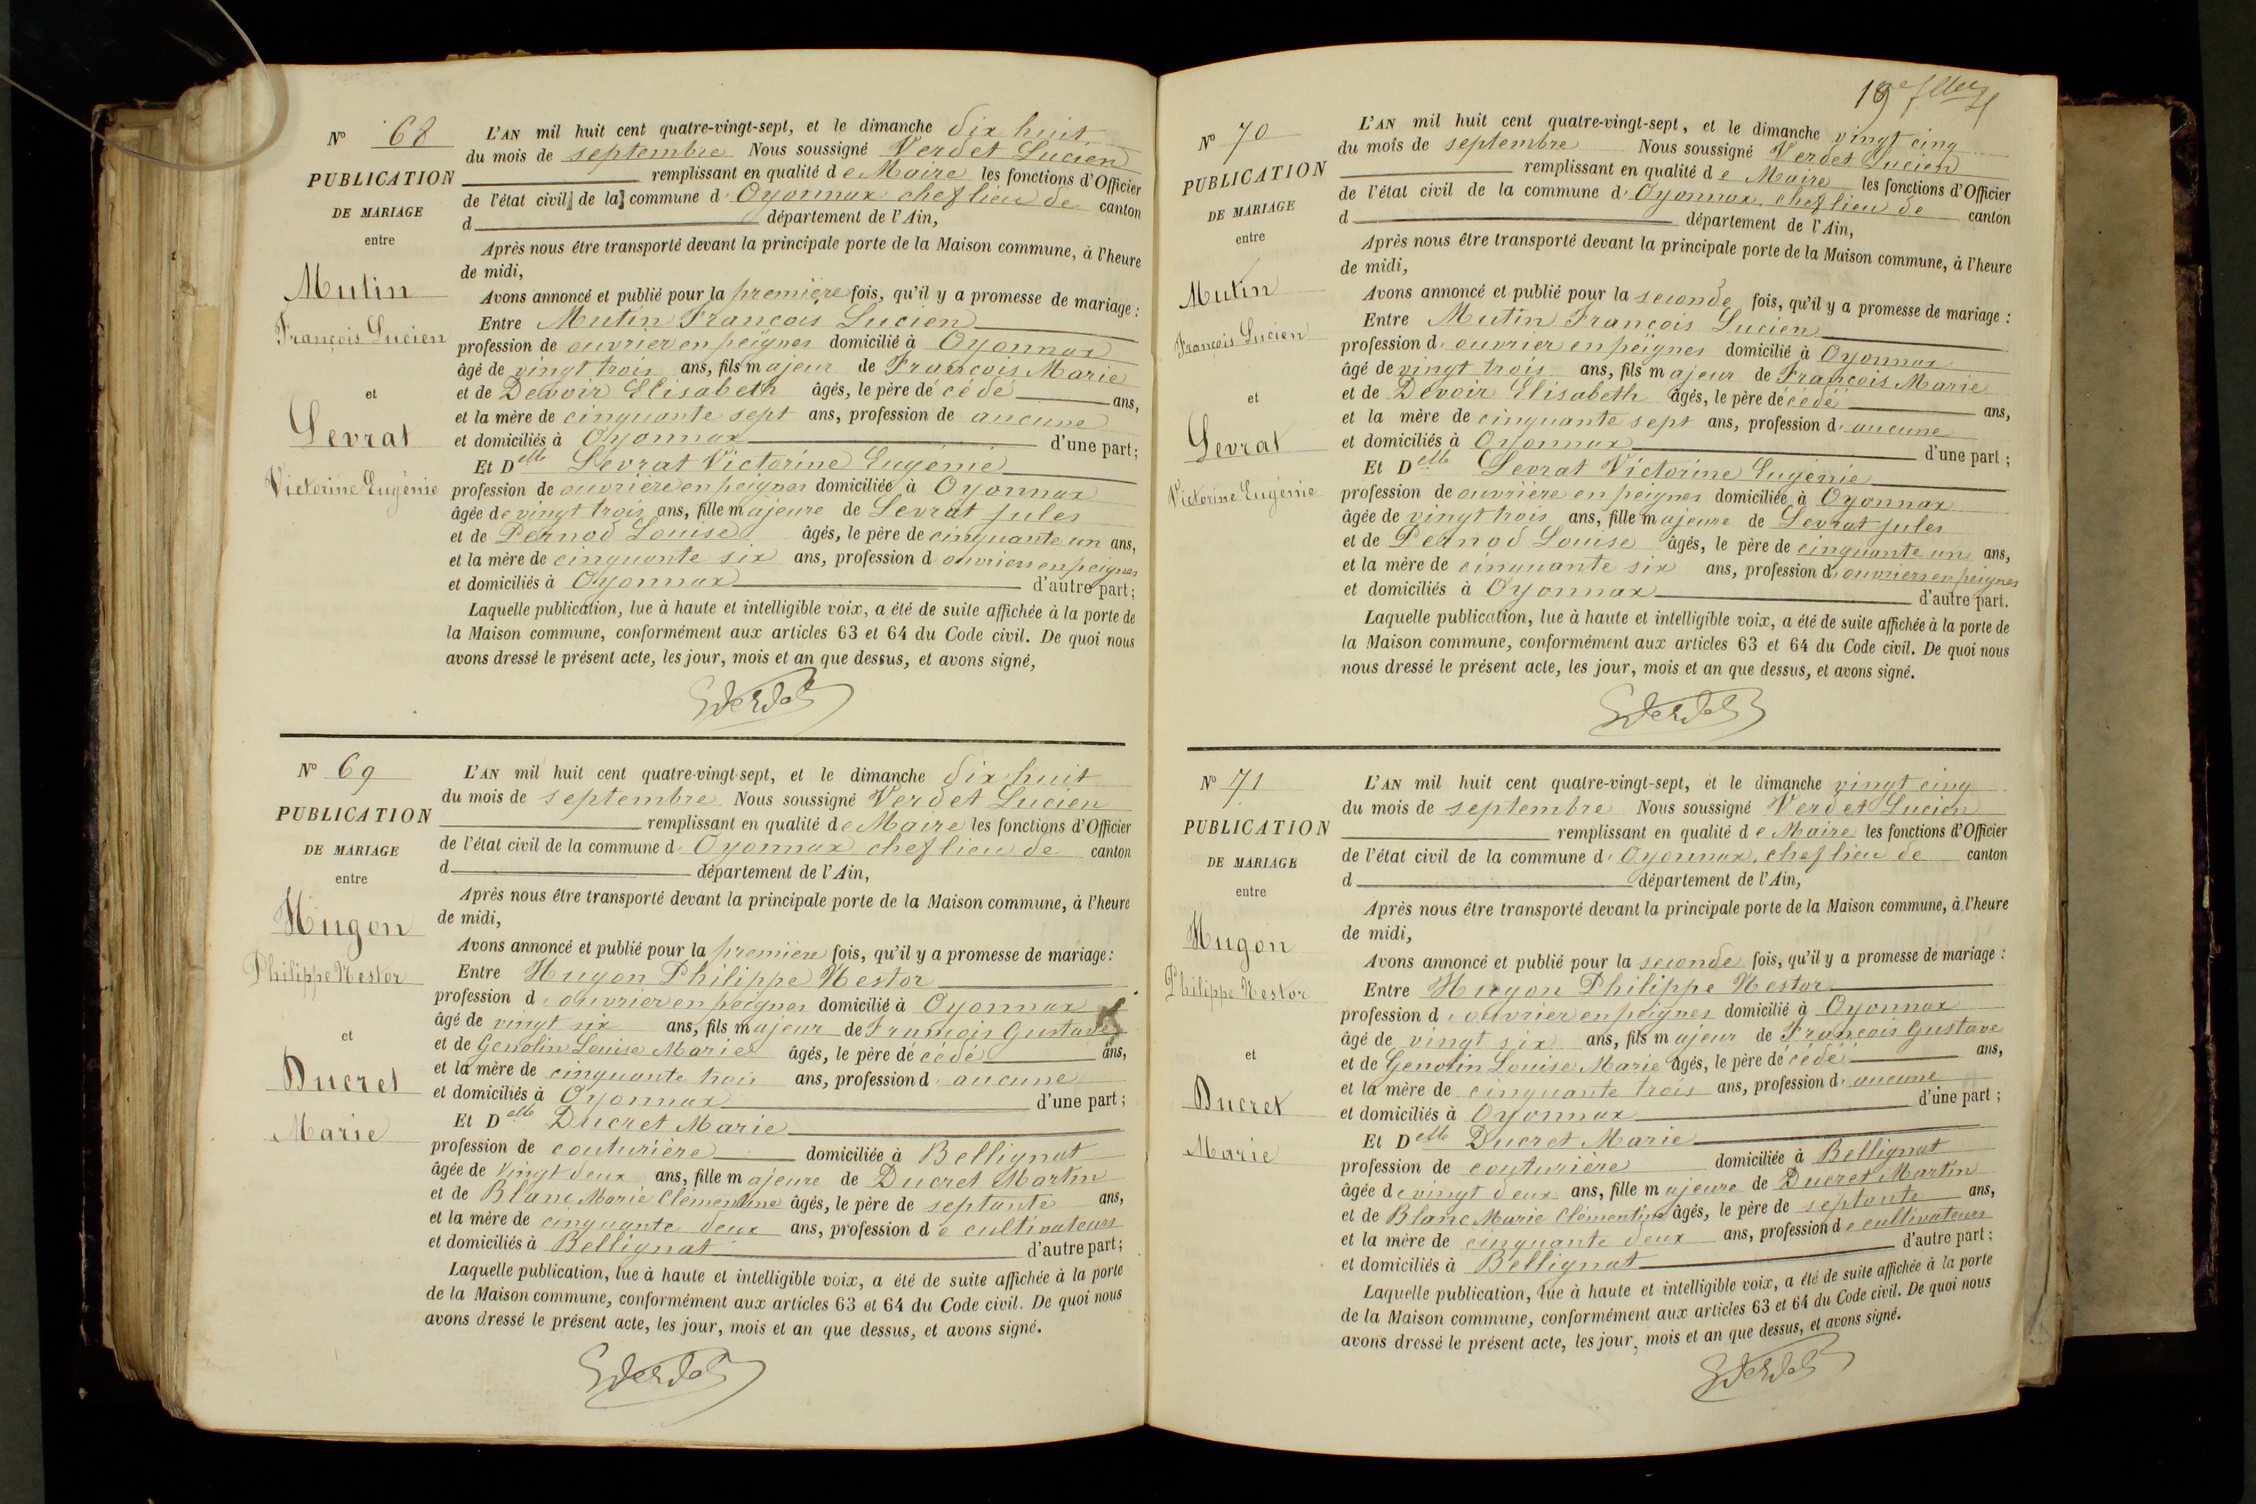 N° 68
PUBLICATION
DE MARIAGE
entre
Mutin
François Lucien
et
Levrat
Victorine Eugénie
L'AN mil huit cent quatre-vingt-sept, et le dimanche dix huit
du mois de septembre Nous soussigné Verdet Lucien
remplissant en qualité de Maire les fonctions d'Officier
de l'état civil de la commune d'Oyonnax chef lieu de canton
d département de l'Ain,
Après nous être transporté devant la principale porte de la Maison commune, à l'heure
de midi,
Avons annoncé et publié pour la première fois, qu'il y a promesse de mariage :
Entre Mutin François Lucien
profession de ouvrier en peignes domicilié à Oyonnax
âgé de vingt trois ans, fils majeur de François Marie
et de Devoir Elisabeth âgés, le père décédé ans,
et la mère de cinquante sept ans, profession de aucune
et domiciliés à Oyonnax d'une part ;
Et Delle Levrat Victorine Eugénie
profession de ouvrière en peignes domiciliée à Oyonnax
âgée de vingt trois ans, fille majeure de Levrat Jules
et de Pernod Louise âgés, le père de cinquante un ans,
et la mère de cinquante six ans, profession d'ouvriers en peignes
et domiciliés à Oyonnax d'autre part ;
Laquelle publication, lue à haute et intelligible voix, a été de suite affichée à la porte de
la Maison commune, conformément aux articles 63 et 64 du Code civil. De quoi nous
avons dressé le présent acte, les jour, mois et an que dessus, et avons signé,
N° 69
PUBLICATION
DE MARIAGE
entre
Hugon
Philippe Nestor
et
Ducret
Marie
L'AN mil huit cent quatre-vingt-sept, et le dimanche dix huit
du mois de septembre Nous soussigné Verdet Lucien
remplissant en qualité de Maire les fonctions d'Officier
de l'état civil de la commune d'Oyonnax chef lieu de canton
d département de l'Ain,
Après nous être transporté devant la principale porte de la Maison commune, à l'heure
de midi,
Avons annoncé et publié pour la première fois, qu'il y a promesse de mariage :
Entre Hugon Philippe Nestor
profession d'ouvrier en peignes domicilié à Oyonnax
âgé de vingt six ans, fils majeur de François Gustave
et de Genolin Louise Marie âgés, le père décédé ans,
et la mère de cinquante trois ans, profession d'aucune
et domiciliés à Oyonnax d'une part ;
Et Delle Ducret Marie
profession de couturière domiciliée à Bellignat
âgée de vingt deux ans, fille majeure de Ducret Martin
et de Blanc Marie Clémentine âgés, le père de septante ans,
et la mère de cinquante deux ans, profession de cultivateurs
et domiciliés à Bellignat d'autre part ;
Laquelle publication, lue à haute et intelligible voix, a été de suite affichée à la porte
de la Maison commune, conformément aux articles 63 et 64 du Code civil. De quoi nous
avons dressé le présent acte, les jour, mois et an que dessus, et avons signé.
N° 70
PUBLICATION
DE MARIAGE
entre
Mutin
François Lucien
et
Levrat
Victorine Eugénie
L'AN mil huit cent quatre-vingt-sept, et le dimanche vingt cinq
du mois de septembre Nous soussigné Verdet Lucien
remplissant en qualité de Maire les fonctions d'Officier
de l'état civil de la commune d'Oyonnax, chef lieu de canton
d département de l'Ain,
Après nous être transporté devant la principale porte de la Maison commune, à l'heure
de midi,
Avons annoncé et publié pour la seconde fois, qu'il y a promesse de mariage :
Entre Mutin François Lucien
profession d'ouvrier en peignes domicilié à Oyonnax
âgé de vingt trois ans, fils majeur de François Marie
et de Devoir Elisabeth âgés, le père décédé ans,
et la mère de cinquante sept ans, profession d'aucune
et domiciliés à Oyonnax d'une part ;
Et Delle Levrat Victorine Eugénie
profession de ouvrière en peignes domiciliée à Oyonnax
âgée de vingt trois ans, fille majeure de Levrat Jules
et de Pernod Louise âgés, le père de cinquante un ans,
et la mère de cinquante six ans, profession d'ouvriers en peignes
et domiciliés à Oyonnax d'autre part.
Laquelle publication, lue à haute et intelligible voix, a été de suite affichée à la porte de
la Maison commune, conformément aux articles 63 et 64 du Code civil. De quoi nous
nous dressé le présent acte, les jour, mois et an que dessus, et avons signé.
N° 71
PUBLICATION
DE MARIAGE
entre
Hugon
Philippe Nestor
et
Ducret
Marie
L'AN mil huit cent quatre-vingt-sept, et le dimanche vingt cinq
du mois de septembre Nous soussigné Verdet Lucien
remplissant en qualité de Maire les fonctions d'Officier
de l'état civil de la commune d'Oyonnax, chef lieu de canton
d département de l'Ain,
Après nous être transporté devant la principale porte de la Maison commune, à l'heure
de midi,
Avons annoncé et publié pour la seconde fois, qu'il y a promesse de mariage :
Entre Hugon Philippe Nestor
profession d'ouvrier en peignes domicilié à Oyonnax
âgé de vingt six ans, fils majeur de François Gustave
et de Genolin Louise Marie âgés, le père décédé ans,
et la mère de cinquante trois ans, profession d'aucune
et domiciliés à Oyonnax d'une part ;
Et Delle Ducret Marie
profession de couturière domiciliée à Bellignat
âgée de vingt deux ans, fille majeure de Ducret Martin
et de Blanc Marie Clémentine âgés, le père de septante ans,
et la mère de cinquante deux ans, profession de cultivateurs
et domiciliés à Bellignat d'autre part ;
Laquelle publication, lue à haute et intelligible voix, a été de suite affichée à la porte
de la Maison commune, conformément aux articles 63 et 64 du Code civil. De quoi nous
avons dressé le présent acte, les jour, mois et an que dessus, et avons signé.